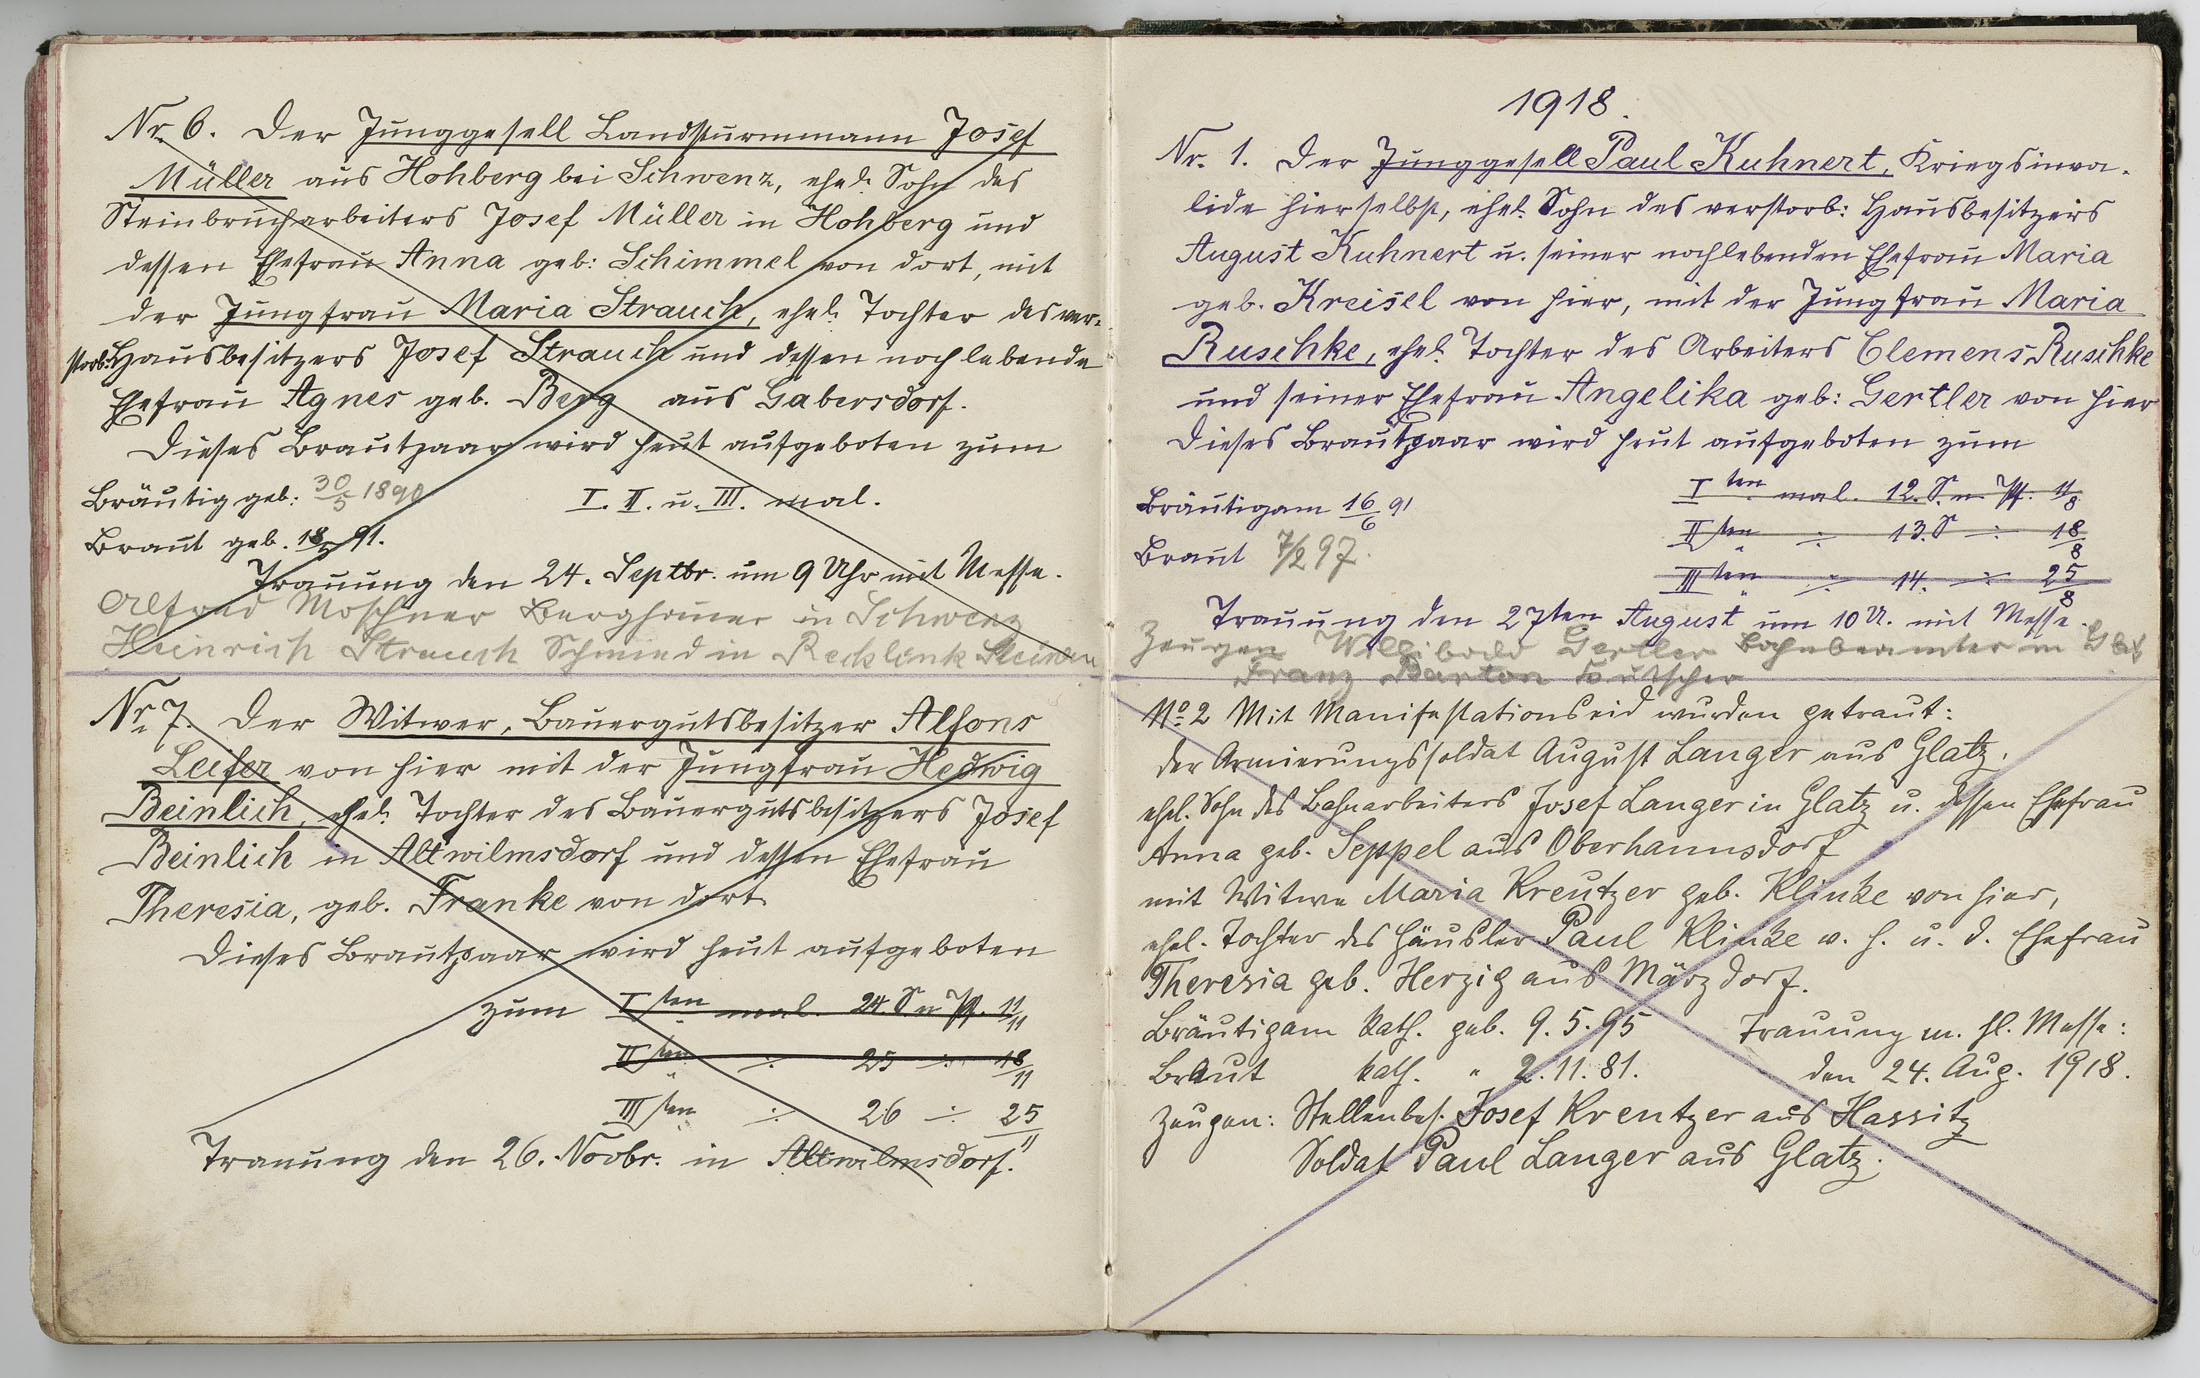 Nr. 6. Der Junggesell Landsturmmann Josef
Müller aus Hohberg bei Schwenz, ehel. Sohn des
Steinbrucharbeiters Josef Müller in Hohberg und
dessen Ehefrau Anna geb: Schimmel von dort, mit
der Jungfrau Maria Strauch, ehel. Tochter des ver-
storb. Hausbesitzers Josef Strauch und dessen noch lebende
Ehefrau Agnes geb. Berg aus Gabersdorf.
Dieses Brautpaar wird heut aufgeboten zum
Bräutig geb: 30/5 1890 I. II. u. III. mal.
Braut geb. 91.
Trauung den 24. Septbr. um 9 Uhr mit Messe.
Alfred Moschner Berghauer in Schwenz
Heinrich Strauch Schmied in
Nr. 7. Der Witwer, Bauergutsbesitzer Alfons
Leifer von hier mit der Jungfrau Hedwig
Beinlich, ehel. Tochter des Bauergutsbesitzers Josef
Beinlich in Altwilmsdorf und dessen Ehefrau
Theresia, geb. Franke von dort.
Dieses Brautpaar wird heut aufgeboten
zum I ten mal. 24. S n Pf. 11/11
II ten " ÷ 25 ÷ 18/11
III ten " ÷ 26 ÷ 25/11
Trauung den 26. Novbr. in Altwilmsdorf.
1918.
Nr. 1. Der Junggesell Paul Kuhnert, Kriegsinva-
lide hierselbst, ehel. Sohn des verstorb: Hausbesitzers
August Kuhnert u. seiner noch lebenden Ehefrau Maria
geb. Kreisel von hier, mit der Jungfrau Maria
Ruschke, ehel. Tochter des Arbeiters Clemens Ruschke
und seiner Ehefrau Angelika geb: Gertler von hier
Dieses Brautpaar wird heut aufgeboten zum
I ten mal. 12. S. n. Pf. 11/8
Bräutigam 16/6 91
II ten " ÷ 13. S ÷ 18/8
Braut 7/2 97.
III ten " ÷ 14. ÷ 25/8
Trauung den 27ten August um 10 U. mit Messe.
Zeugen Willibald Gertler Bahnbeamter in
Franz Barton Kutscher
No 2 Mit Manifestationseid wurden getraut:
der Armierungssoldat August Langer aus Glatz,
ehel. Sohn des Bahnarbeiters Josef Langer in Glatz u. dessen Ehefrau
Anna geb. Seppel aus Oberhannsdorf
mit Witwe Maria Kreutzer geb. Klinke von hier,
ehel. Tochter des Häusler Paul Klinke v. h. u. d. Ehefrau
Theresia geb. Herzig aus Märzdorf.
Bräutigam kath. geb. 9. 5. 95 Trauung m. hl. Messe:
Braut kath. " 2. 11. 81. den 24. Aug. 1918.
Zeugen: Stellenbes. Josef Kreutzer aus Hassitz
Soldat Paul Langer aus Glatz.